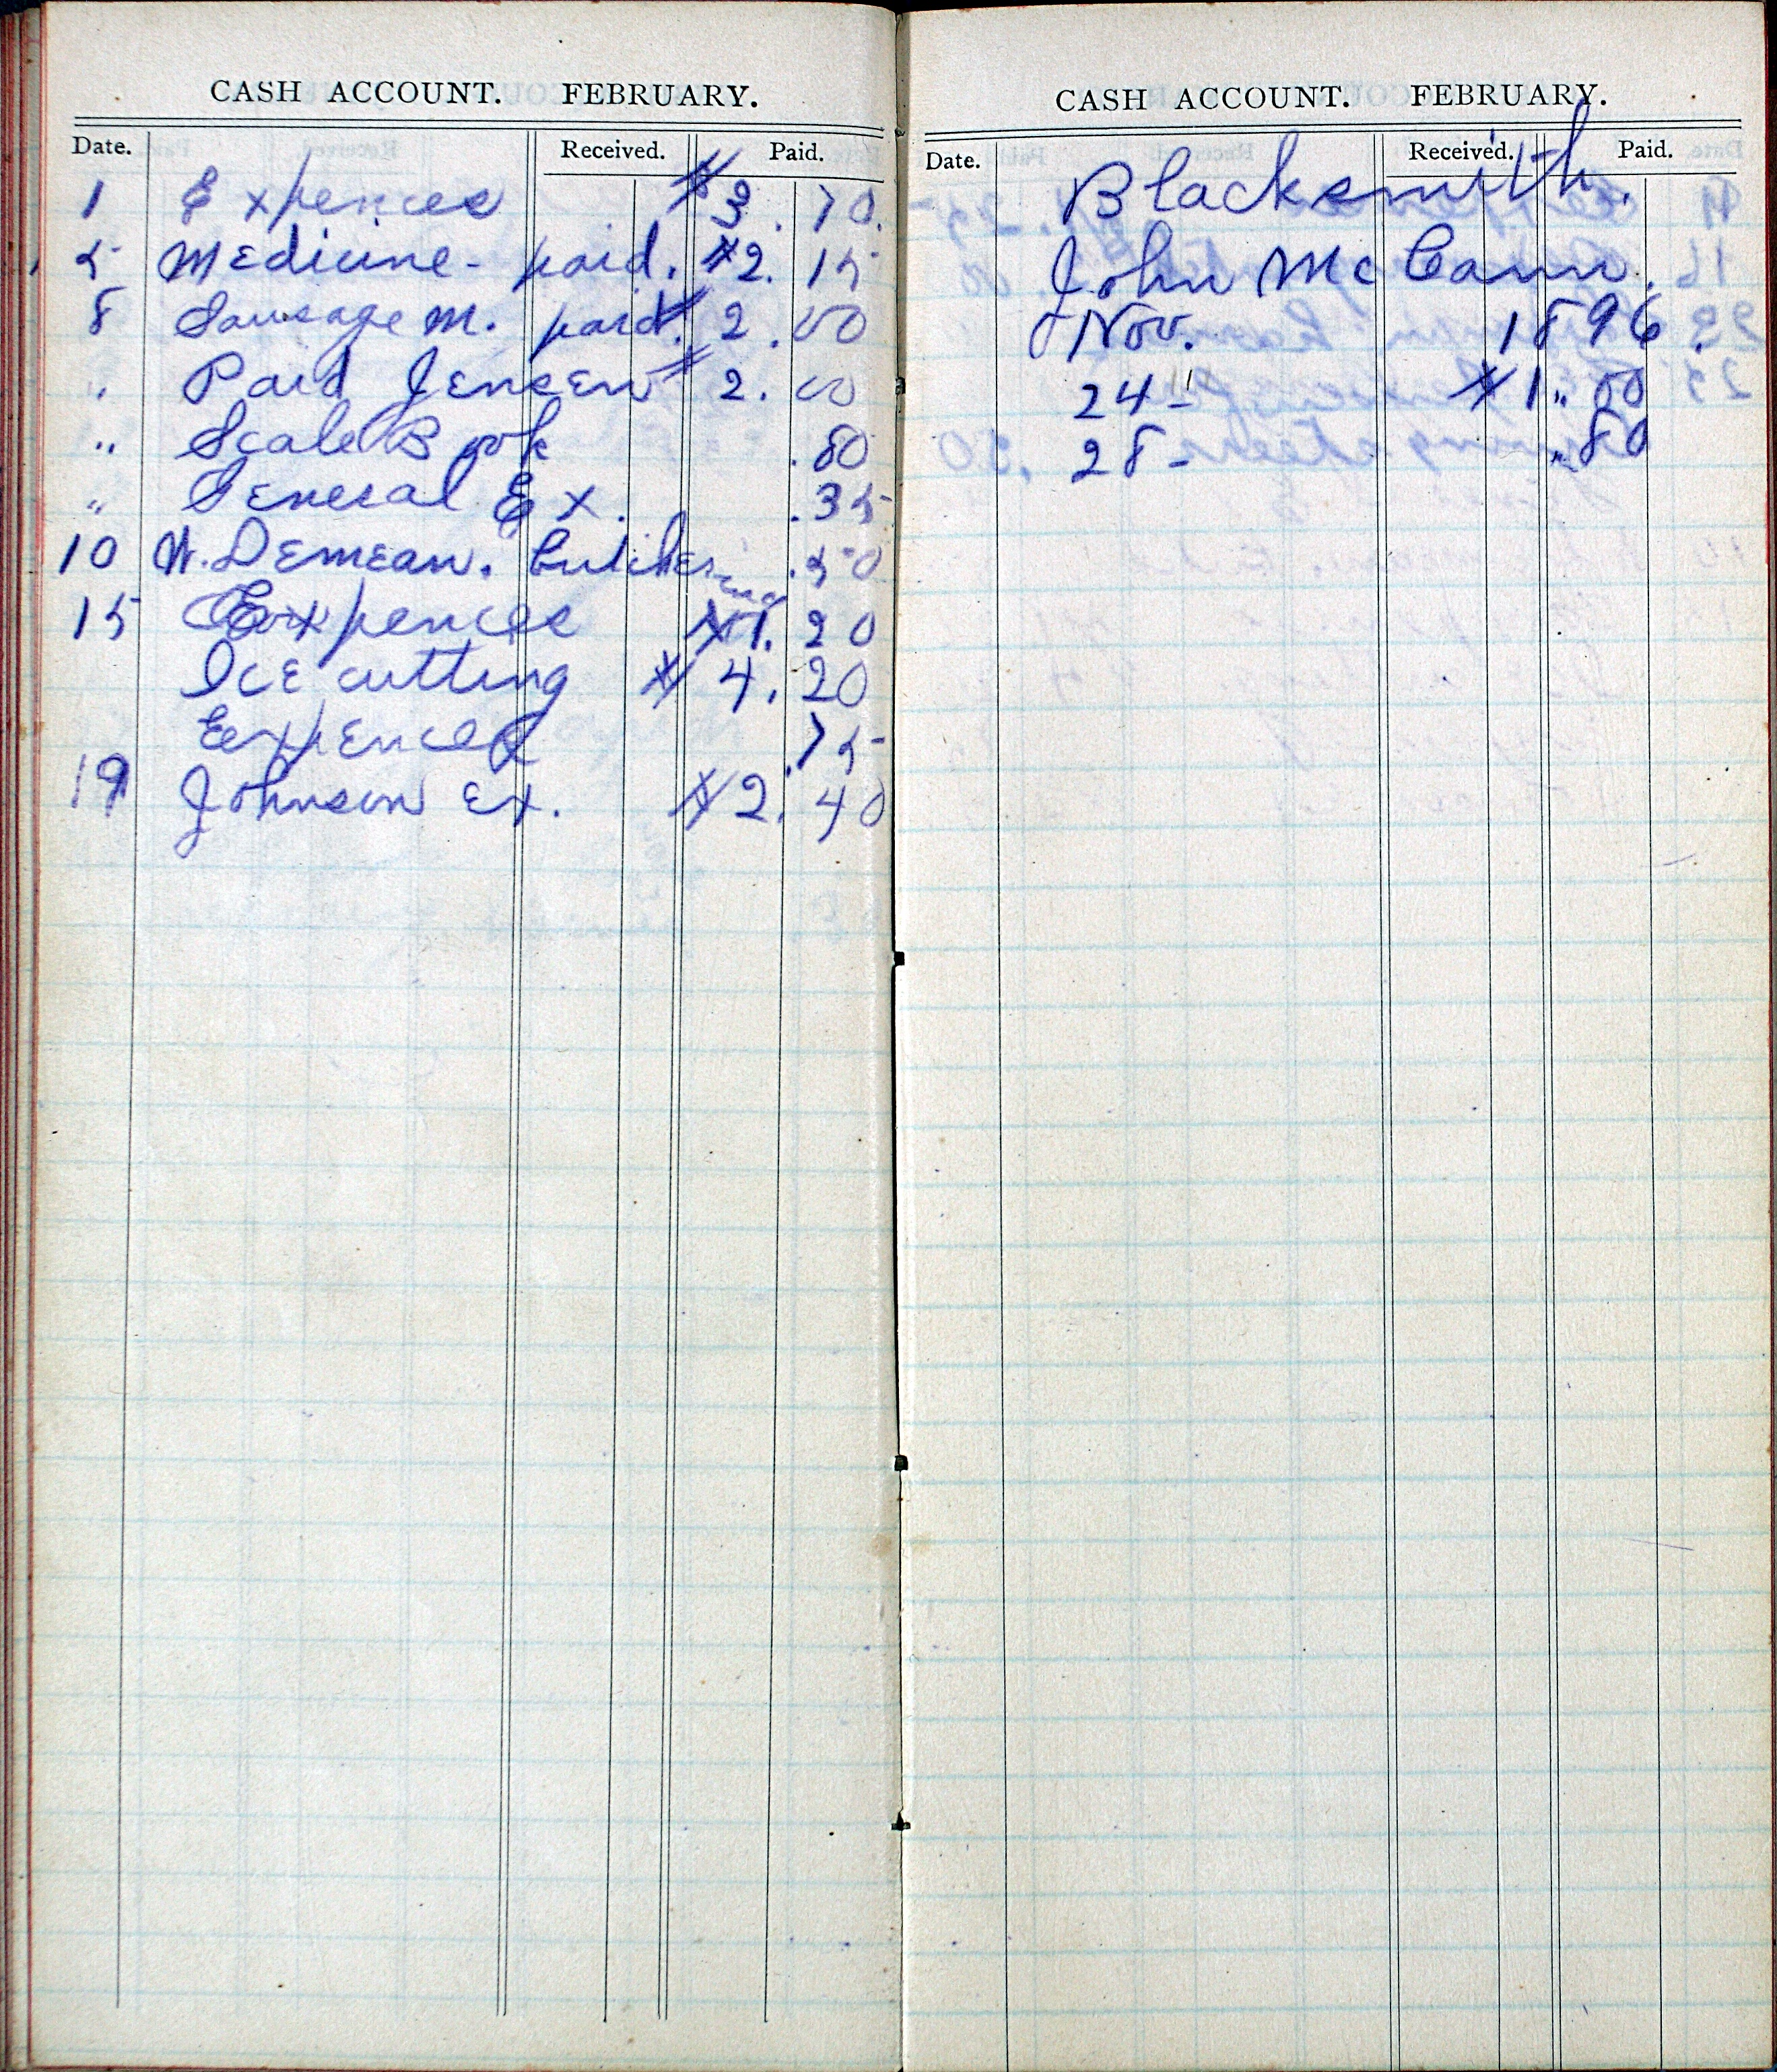 CASH ACCOUNT. FEBRUARY.
Date. Received. Paid.
1 Expences $3.70.
5 Medicine - paid. $2.15
8 Sausage M. paid. $2.00
" Paid Jensen $2.00
" Scale Book .80
" General Ex. .35
10 W. Demean. Butchering .50
15 Expences $1.20
Ice cutting $4.20
Expences .75
19 Johnson Ex. $2.40
CASH ACCOUNT. FEBRUARY.
Date. Received. Paid.
Blacksmith.
John McCann.
Nov. 1896.
24 - $1.00
28 - .80